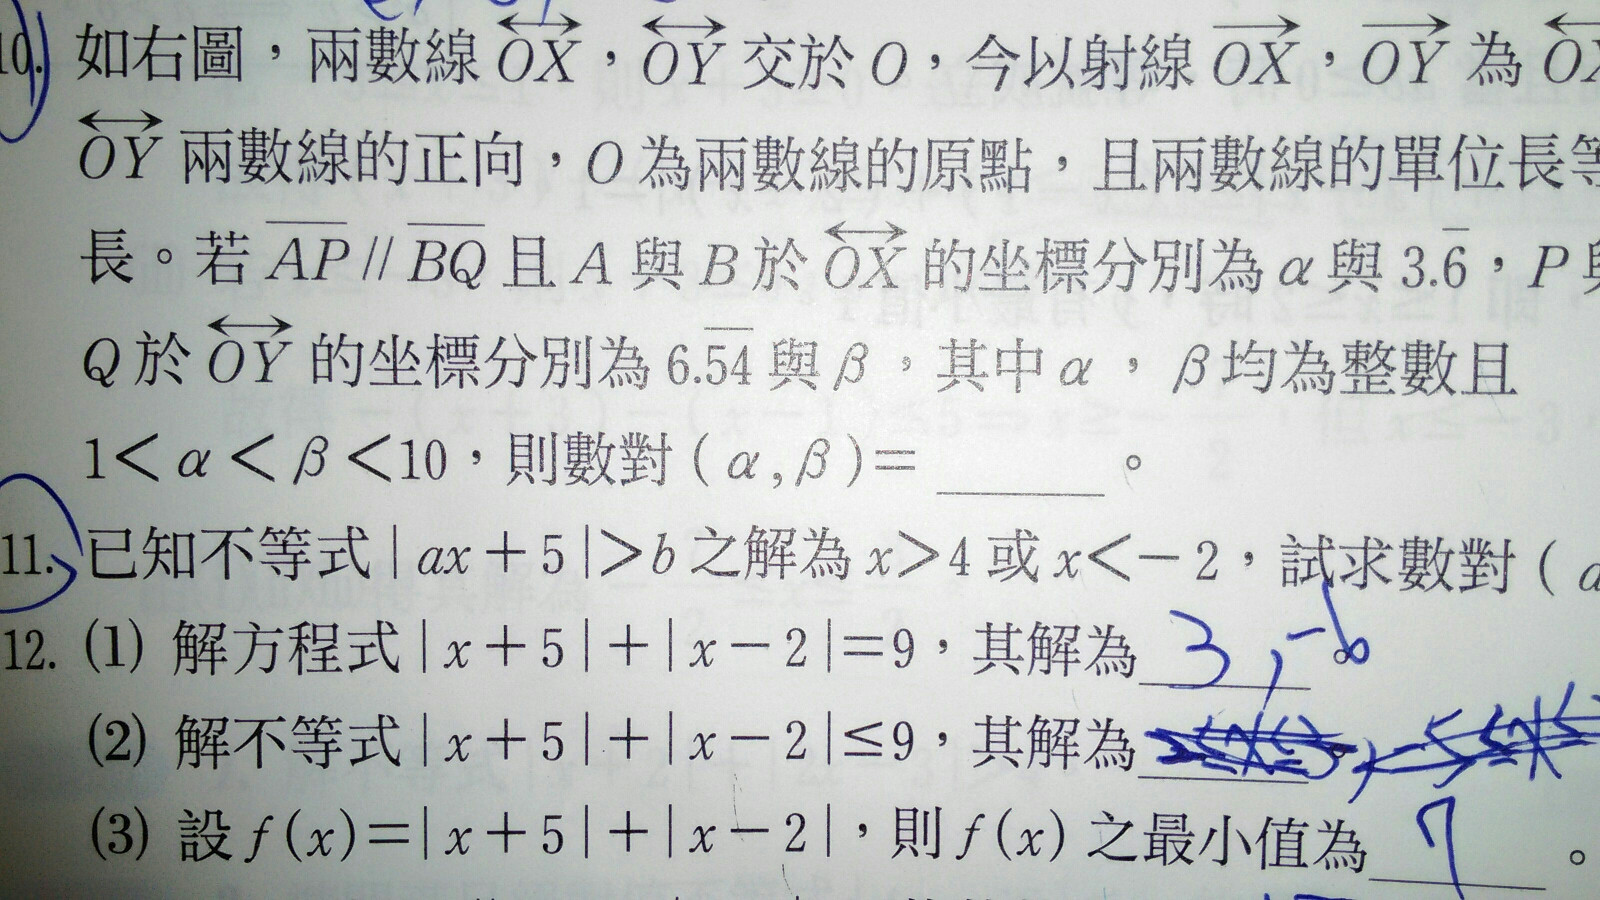 10. 如右圖，兩數線 OX，OY 交於 O，今以射線 OX，OY 為 OX
OY 兩數線的正向，O 為兩數線的原點，且兩數線的單位長等
長。若 AP // BQ 且 A 與 B 於 OX 的坐標分別為 α 與 3.6̅，P 與
Q 於 OY 的坐標分別為 6.5̅4̅ 與 β，其中 α，β 均為整數且
1＜α＜β＜10，則數對（α,β）＝______。
11. 已知不等式｜ax＋5｜＞b 之解為 x＞4 或 x＜－2，試求數對（a
12. (1) 解方程式｜x＋5｜＋｜x－2｜＝9，其解為 3，-6。
(2) 解不等式｜x＋5｜＋｜x－2｜≤9，其解為
(3) 設 f(x)＝｜x＋5｜＋｜x－2｜，則 f(x) 之最小值為 7。